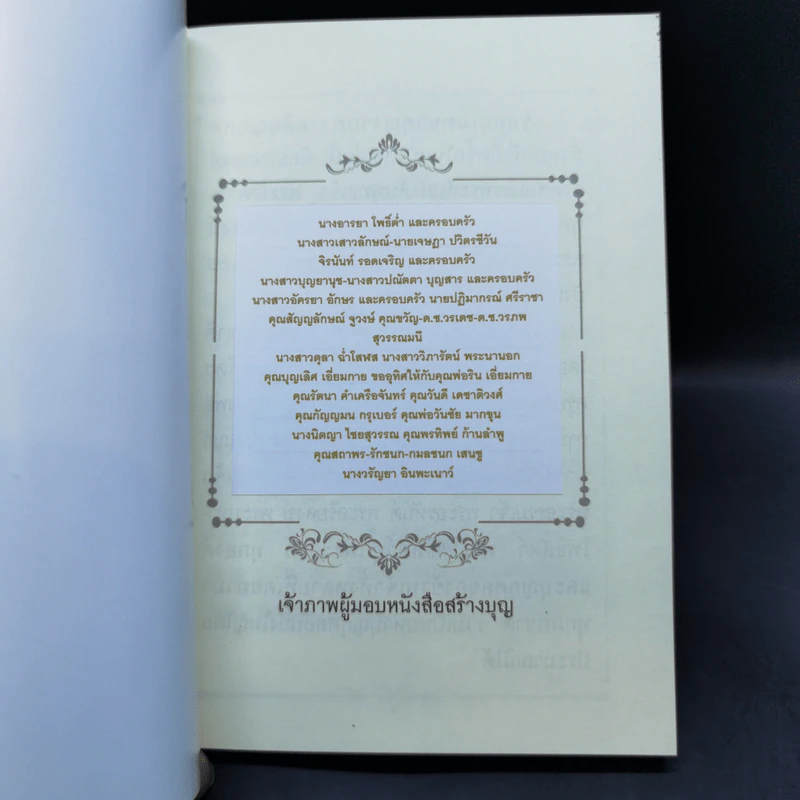 นางอารยา โพธิ์ต่ำ และครอบครัว
นางสาวเสาวลักษณ์-นายเจษฎา ปวิตรชีวัน
จิรนันท์ รอดเจริญ และครอบครัว
นางสาวบุญยานุช-นางสาวปณัตตา บุญสาร และครอบครัว
นางสาวอัครยา อักษร และครอบครัว นายปฏิมากรณ์ ศรีราชา
คุณสัญญลักษณ์ จูวงษ์ คุณขวัญ-ด.ช.วรเดช-ด.ช.วรภพ
สุวรรณมนี
นางสาวตุลา ฉ่ำโสฬส นางสาววิภารัตน์ พระนานอก
คุณบุญเลิศ เอี่ยมกาย ขออุทิศให้กับคุณพ่อริน เอี่ยมกาย
คุณรัตนา คำเครือจันทร์ คุณวันดี เดชาติวงศ์
คุณกัญญมน กรุเบอร์ คุณพ่อวันชัย มากขุน
นางนิตญา ไชยสุวรรณ คุณพรทิพย์ ก้านลำพู
คุณสถาพร-รักชนก-กมลชนก เสนชู
นางวรัญยา อินพะเนาว์
เจ้าภาพผู้มอบหนังสือสร้างบุญ